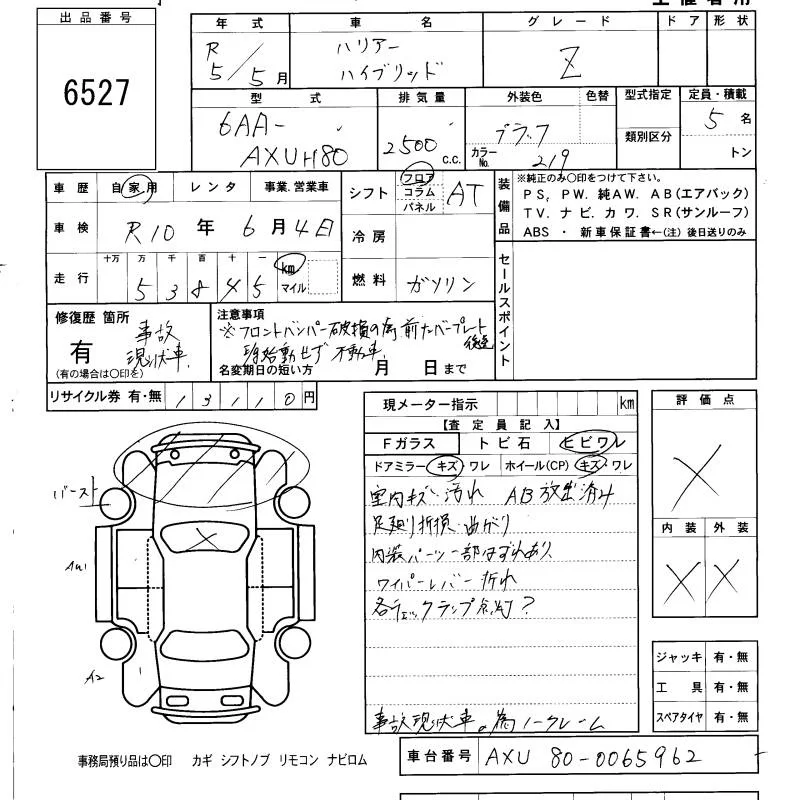 出品番号
6527
年式 車名 グレード ドア 形状
R 5/5月 ハリアー ハイブリッド Z
型式 排気量 外装色 色替 型式指定 定員・積載
6AA- AXUH80 2500 c.c. ブラック カラーNo. 219 類別区分 5名 トン
車歴 自家用 レンタ 事業.営業車 シフト フロア コラム パネル AT
装備品 ※純正のみ〇印をつけて下さい。
PS, PW. 純AW. AB(エアバック)
TV. ナビ. カワ. SR(サンルーフ)
ABS ・ 新車保証書←(注) 後日送りのみ
車検 R10年 6月4日 冷房
走行 十万 万 千 百 十 一 km マイル 5 3 8 4 5 燃料 ガソリン
セールスポイント
修復歴 箇所 有 (有の場合は〇印を) 事故 現状車
注意事項
※フロントバンパー破損の為 前ナンバープレート 後送
始動せず 不動車
名変期日の短い方 月 日まで
リサイクル券 有・無 1 3 1 1 0 円
現メーター指示 km
【査定員記入】
Fガラス トビ石 ヒビワレ
ドアミラー キズ ワレ ホイール(CP) キズ ワレ
室内キズ 汚れ AB放出済み
足廻り折損・曲がり
内装パーツ一部はずれあり
ワイパーレバー折れ
各チェックランプ点灯?
事故現状車の為ノークレーム
評価点
X
内装 外装
X X
バースト
AU1
A2
X
ジャッキ 有・無
工具 有・無
スペアタイヤ 有・無
事務局預り品は〇印 カギ シフトノブ リモコン ナビロム
車台番号 AXU 80-0065962